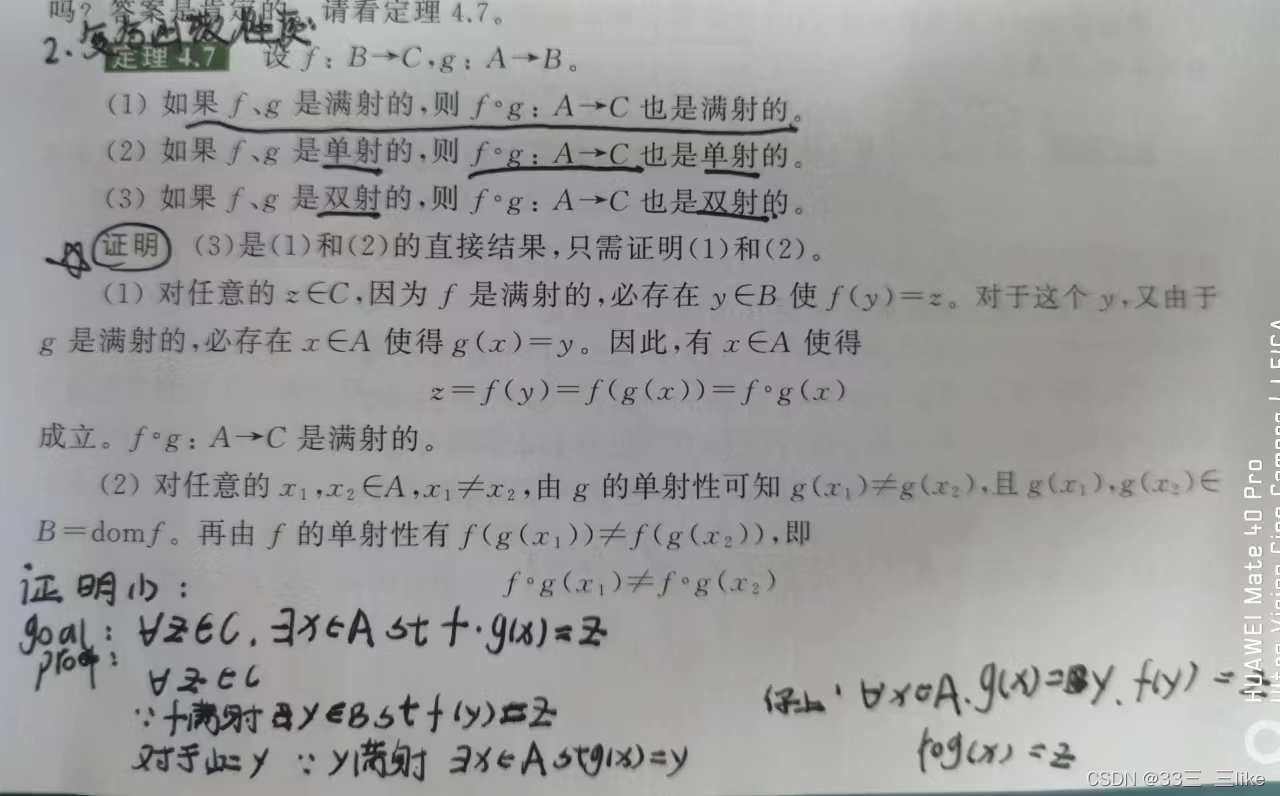 吗?答案是肯定的。请看定理4.7。
2.复合函数性质:
定理4.7 设 f:B→C,g:A→B。
(1) 如果 f、g 是满射的,则 f∘g:A→C 也是满射的。
(2) 如果 f、g 是单射的,则 f∘g:A→C 也是单射的。
(3) 如果 f、g 是双射的,则 f∘g:A→C 也是双射的。
证明 (3)是(1)和(2)的直接结果,只需证明(1)和(2)。
(1) 对任意的 z∈C,因为 f 是满射的,必存在 y∈B 使 f(y)=z。对于这个 y,又由于
g 是满射的,必存在 x∈A 使得 g(x)=y。因此,有 x∈A 使得
z=f(y)=f(g(x))=f∘g(x)
成立。f∘g:A→C 是满射的。
(2) 对任意的 x₁,x₂∈A,x₁≠x₂,由 g 的单射性可知 g(x₁)≠g(x₂),且 g(x₁),g(x₂)∈
B=domf。再由 f 的单射性有 f(g(x₁))≠f(g(x₂)),即
f∘g(x₁)≠f∘g(x₂)
证明(1):
goal: ∀z∈C. ∃x∈A st f·g(x)=z
proof:
∀z∈C
∵f满射 ∃y∈B st f(y)=z
对于此y ∵y满射 ∃x∈A st g(x)=y
综上: ∀x∈A. g(x)=y. f(y)=z
fog(x)=z
HUAWEI Mate 40 Pro
CSDN @33三_三like